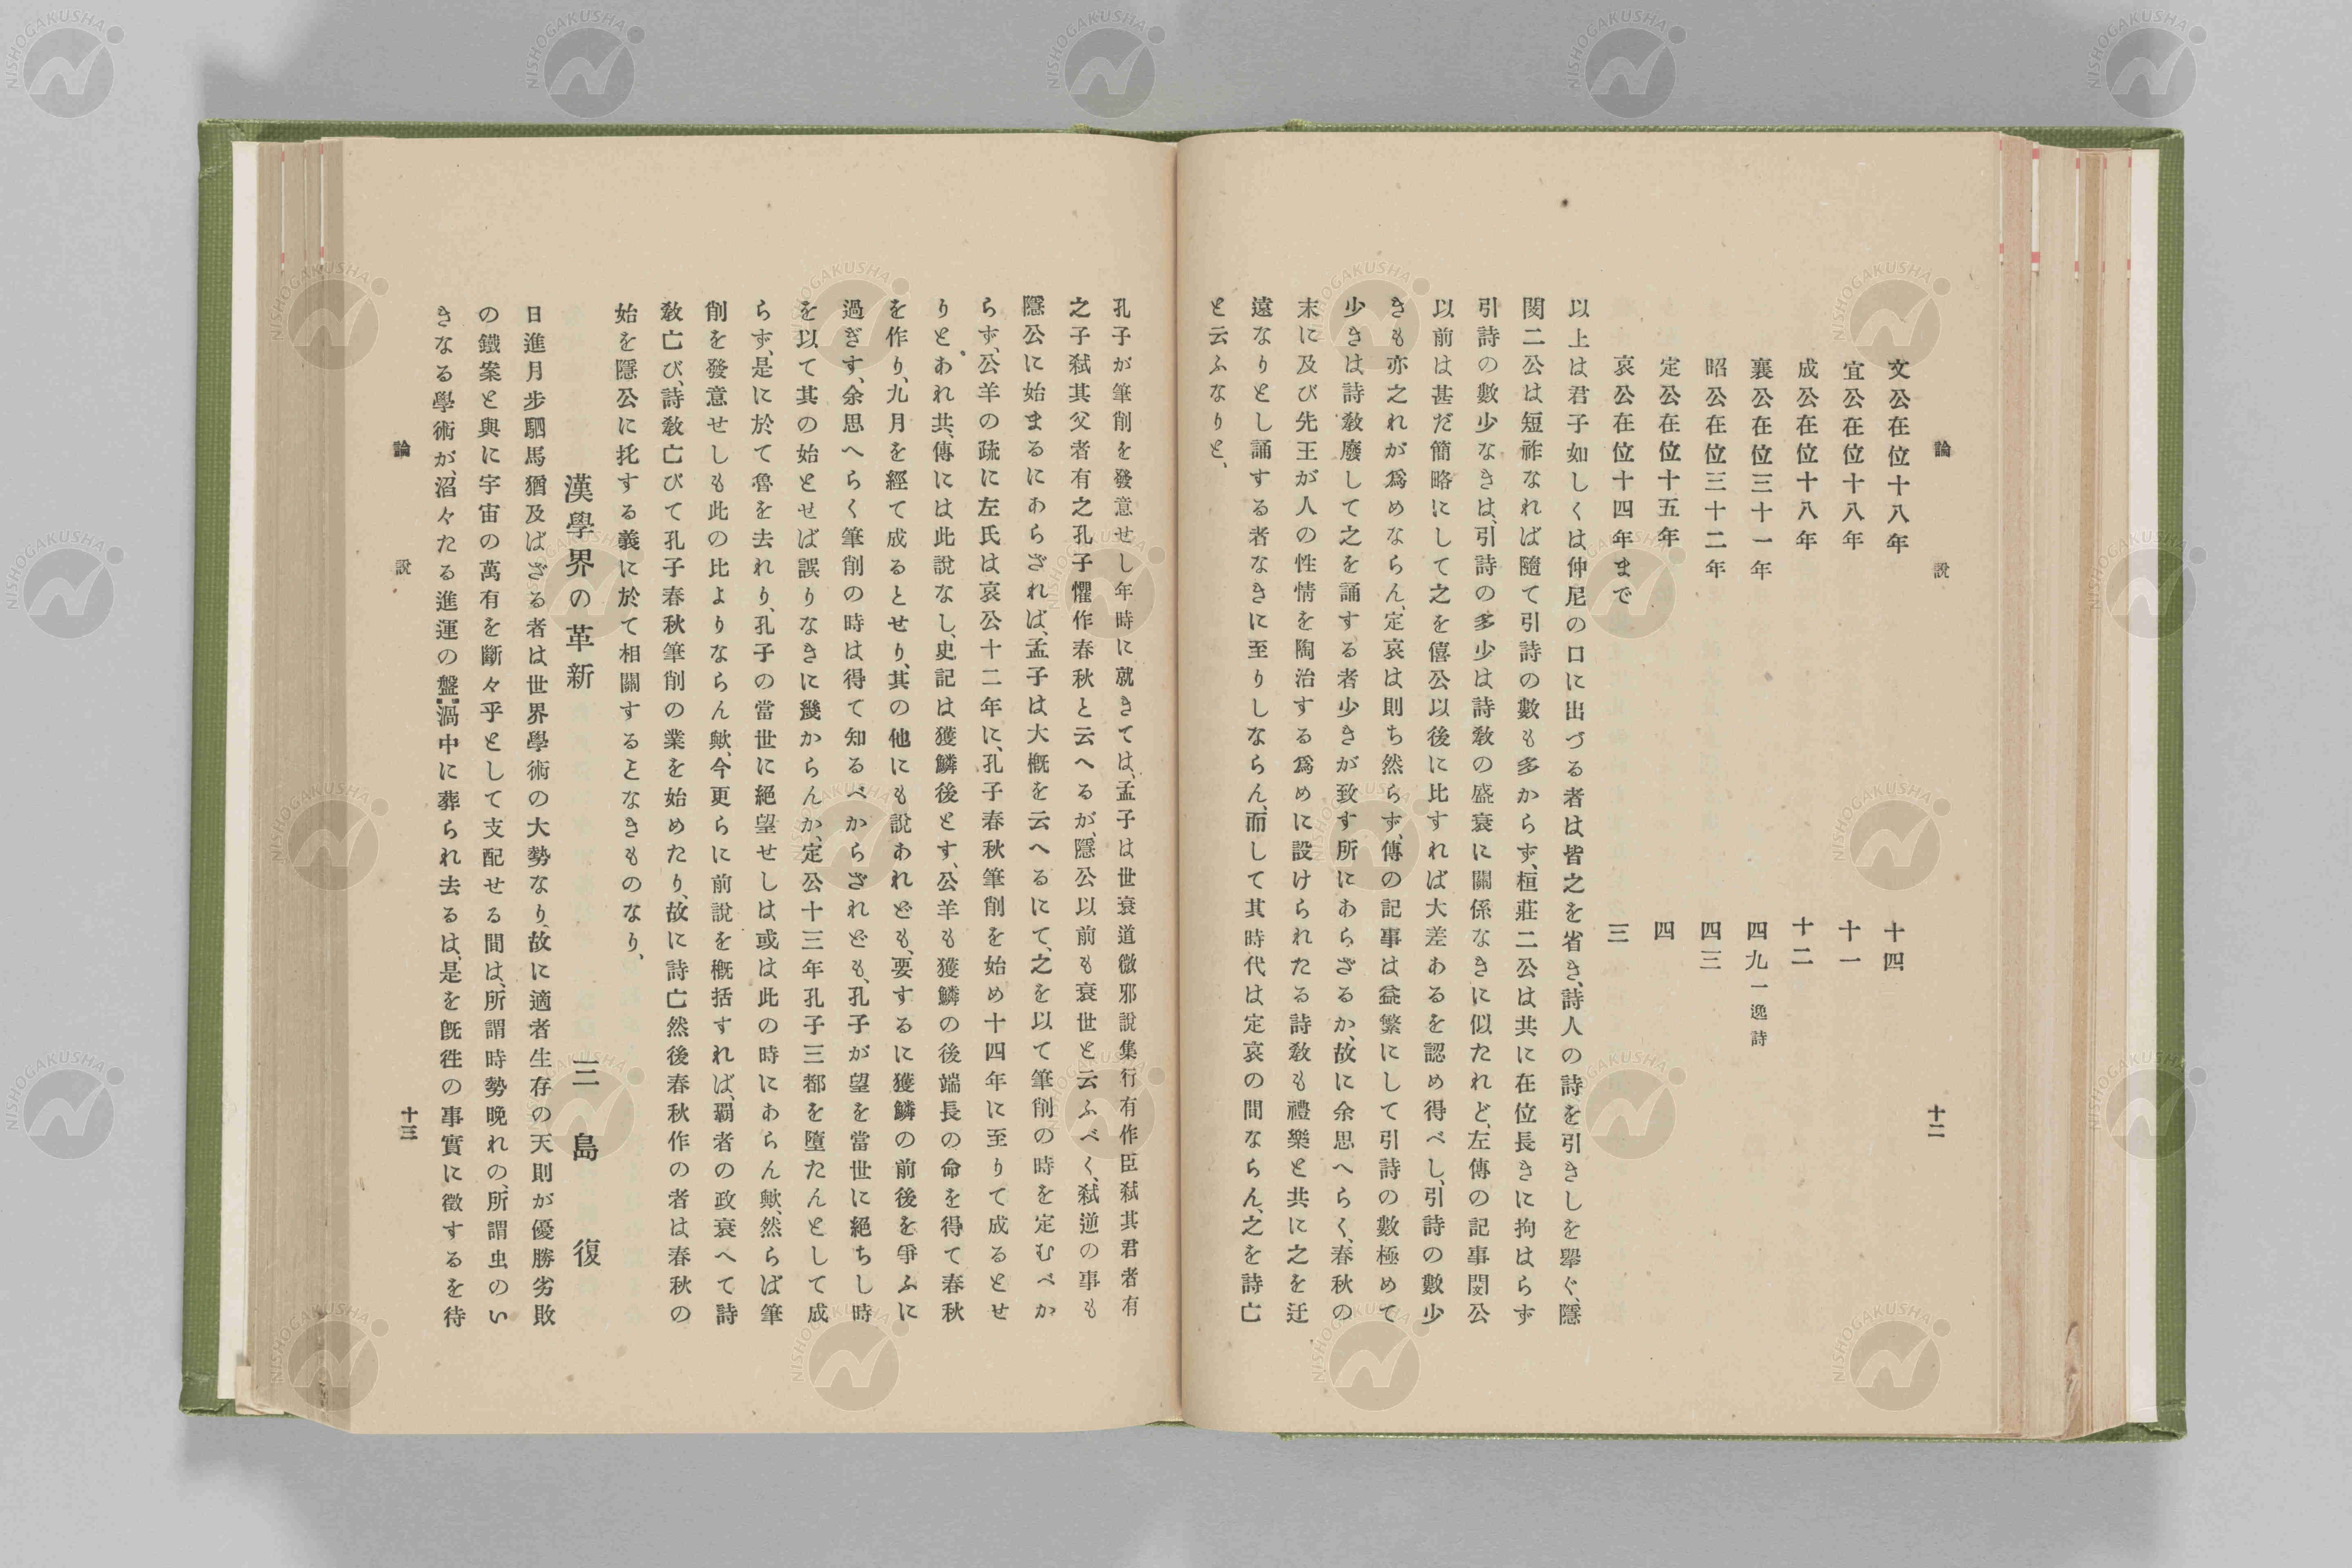 論說
十二
文公在位十八年 十四
宣公在位十八年 十一
成公在位十八年 十二
襄公在位三十一年 四九 一逸詩
昭公在位三十二年 四三
定公在位十五年 四
哀公在位十四年まで 三
以上は君子如しくは仲尼の口に出づる者は皆之を省き、詩人の詩を引きしを擧ぐ、隱
閔二公は短祚なれば隨て引詩の數も多からず、桓莊二公は共に在位長きに拘はらず
引詩の數少なきは、引詩の多少は詩敎の盛衰に關係なきに似たれど、左傳の記事閔公
以前は甚だ簡略にして之を僖公以後に比すれば大差あるを認め得べし、引詩の數少
きも亦之れが爲めならん、定哀は則ち然らず、傳の記事は益繁にして引詩の數極めて
少きは詩敎廢して之を誦する者少きが致す所にあらざるか、故に余思へらく、春秋の
末に及び先王が人の性情を陶治する爲めに設けられたる詩敎も禮樂と共に之を迂
遠なりとし誦する者なきに至りしならん、而して其時代は定哀の間ならん、之を詩亡
と云ふなりと、
孔子が筆削を發意せし年時に就きては、孟子は世衰道微邪說集行有作臣弑其君者有
之子弑其父者有之孔子懼作春秋と云へるが、隱公以前も衰世と云ふべく、弑逆の事も
隱公に始まるにあらざれば、孟子は大槪を云へるにて、之を以て筆削の時を定むべか
らず、公羊の疏に左氏は哀公十二年に、孔子春秋筆削を始め十四年に至りて成るとせ
りとあれ共、傳には此說なし、史記は獲麟後とす、公羊も獲麟の後端長の命を得て春秋
を作り、九月を經て成るとせり、其の他にも說あれども、要するに獲麟の前後を爭ふに
過ぎす、余思へらく筆削の時は得て知るべからざれども、孔子が望を當世に絕ちし時
を以て其の始とせば誤りなきに幾からんか、定公十三年孔子三都を墮たんとして成
らず、是に於て魯を去れり、孔子の當世に絕望せしは或は此の時にあらん歟、然らば筆
削を發意せしも此の比よりならん歟、今更らに前說を槪括すれば、覇者の政衰へて詩
敎亡び、詩敎亡びて孔子春秋筆削の業を始めたり、故に詩亡然後春秋作の者は、春秋の
始を隱公に托する義に於て相關するとなきものなり、
漢學界の革新 三島 復
日進月步駟馬猶及ばざる者は世界學術の大勢なり、故に適者生存の天則が優勝劣敗
の鐵案と與に宇宙の萬有を斷々乎として支配せる間は、所謂時勢晩れの、所謂虫のい
きなる學術が、滔々たる進運の盤渦中に葬られ去るは、是を旣往の事實に徵するを待
論說
十三